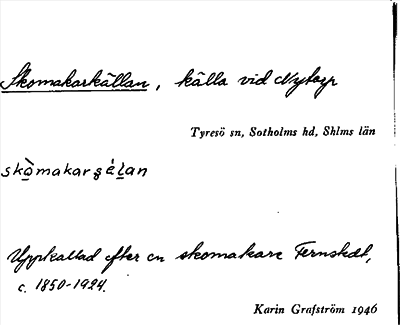 Skomakarkällan, källa vid Nytorp
Tyresö sn, Sotholms hd, Shlms län
skò̱makarʂáḻan
Uppkallad efter en skomakare Fernstedt,
c. 1850-1924.
Karin Grafström 1946